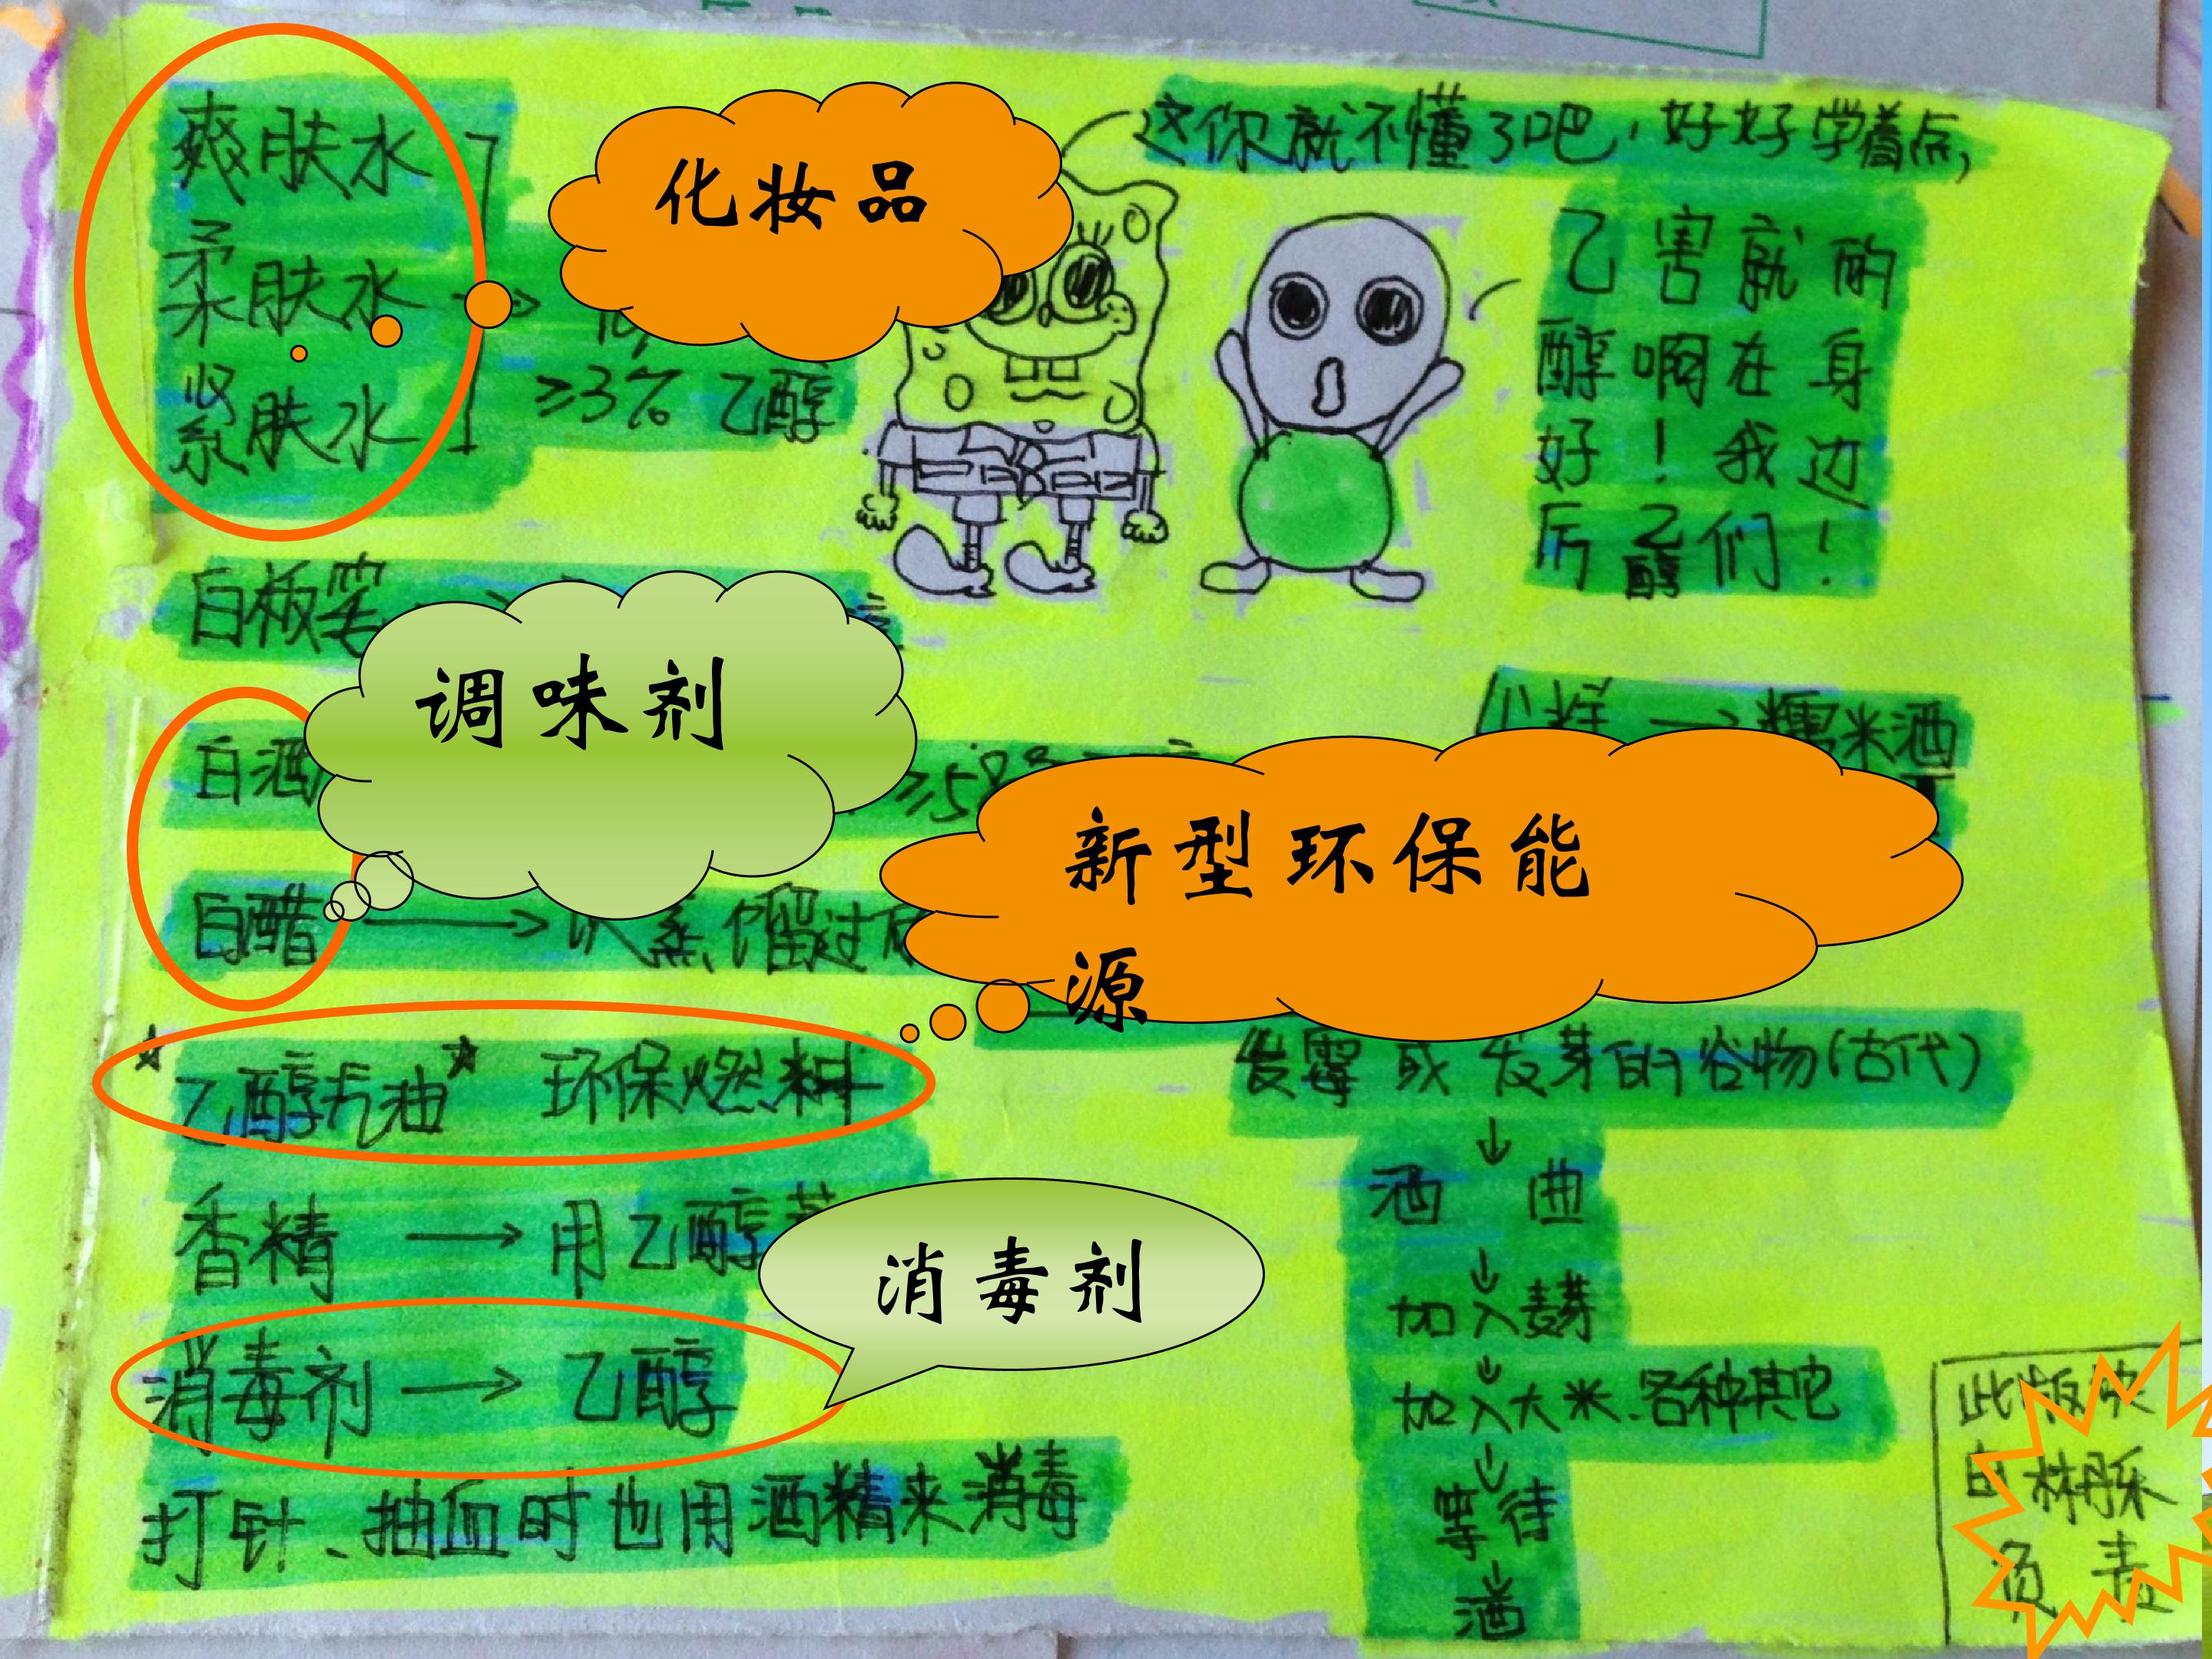 爽肤水
柔肤水
紧肤水
≥3% 乙醇
化妆品
这你就不懂了吧，好好学着点，
乙醇好厉
害啊！乙醇
就在我们
的身边！
白板笔
调味剂
白酒
→糯米酒
白醋
蒸馏过
新型环保能
源
★乙醇汽油★ 环保燃料
发霉或发芽的谷物(古代)
↓
酒曲
↓
加入麦芽
↓
加入大米、各种其它
↓
等待
↓
酒
香精 → 用乙醇
消毒剂
消毒剂 → 乙醇
打针、抽血时也用酒精来消毒
此版块
由林
负责